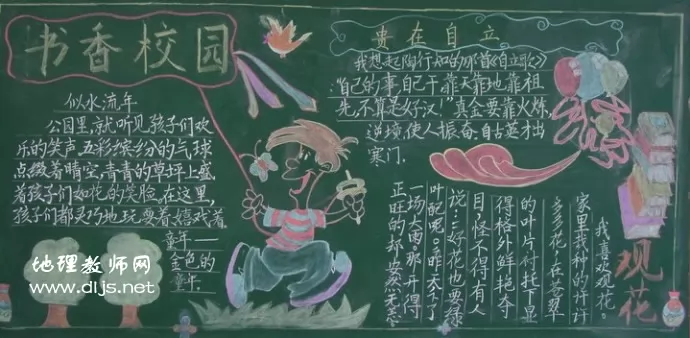 书香校园
似水流年
公园里,就听见孩子们欢
乐的笑声,五彩缤纷的气球
点缀着晴空,青青的草坪上盛
着孩子们如花的笑脸,在这里,
孩子们都灵巧地玩耍着嬉戏着
童年——
金色的
童年
地理教师网
www.dljs.net
贵在自立
我想起陶行知的那首《自立歌》
:"自己的事,自己干,靠天靠地靠祖
先,不算是好汉!"真金要靠火炼,
逆境,使人振奋,自古英才出
寒门.
观花
我喜欢观花。
家里我种的许许
多多花,在苍翠
的叶片衬托下,显
得格外鲜艳夺
目,怪不得有人
说:"好花也要绿
叶配呢。昨天下了
一场大雨,那开得
正旺的
安然无恙